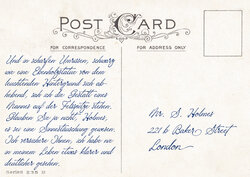 POST CARD
FOR CORRESPONDENCE
FOR ADDRESS ONLY
Und in scharfen Umrissen, schwarz
wie eine Ebenholzstatue von dem
leuchtenden Hintergrund sich ab-
hebend, sah ich die Gestalt eines
Mannes auf der Felsspitze stehen.
Glauben Sie ja nicht, Holmes,
es sei eine Sinnestäuschung gewesen.
Ich versichere Ihnen, ich habe nie
in meinem Leben etwas klarer und
deutlicher gesehen.
Mr. S. Holmes
221 b Baker Street
London
Series 235 D